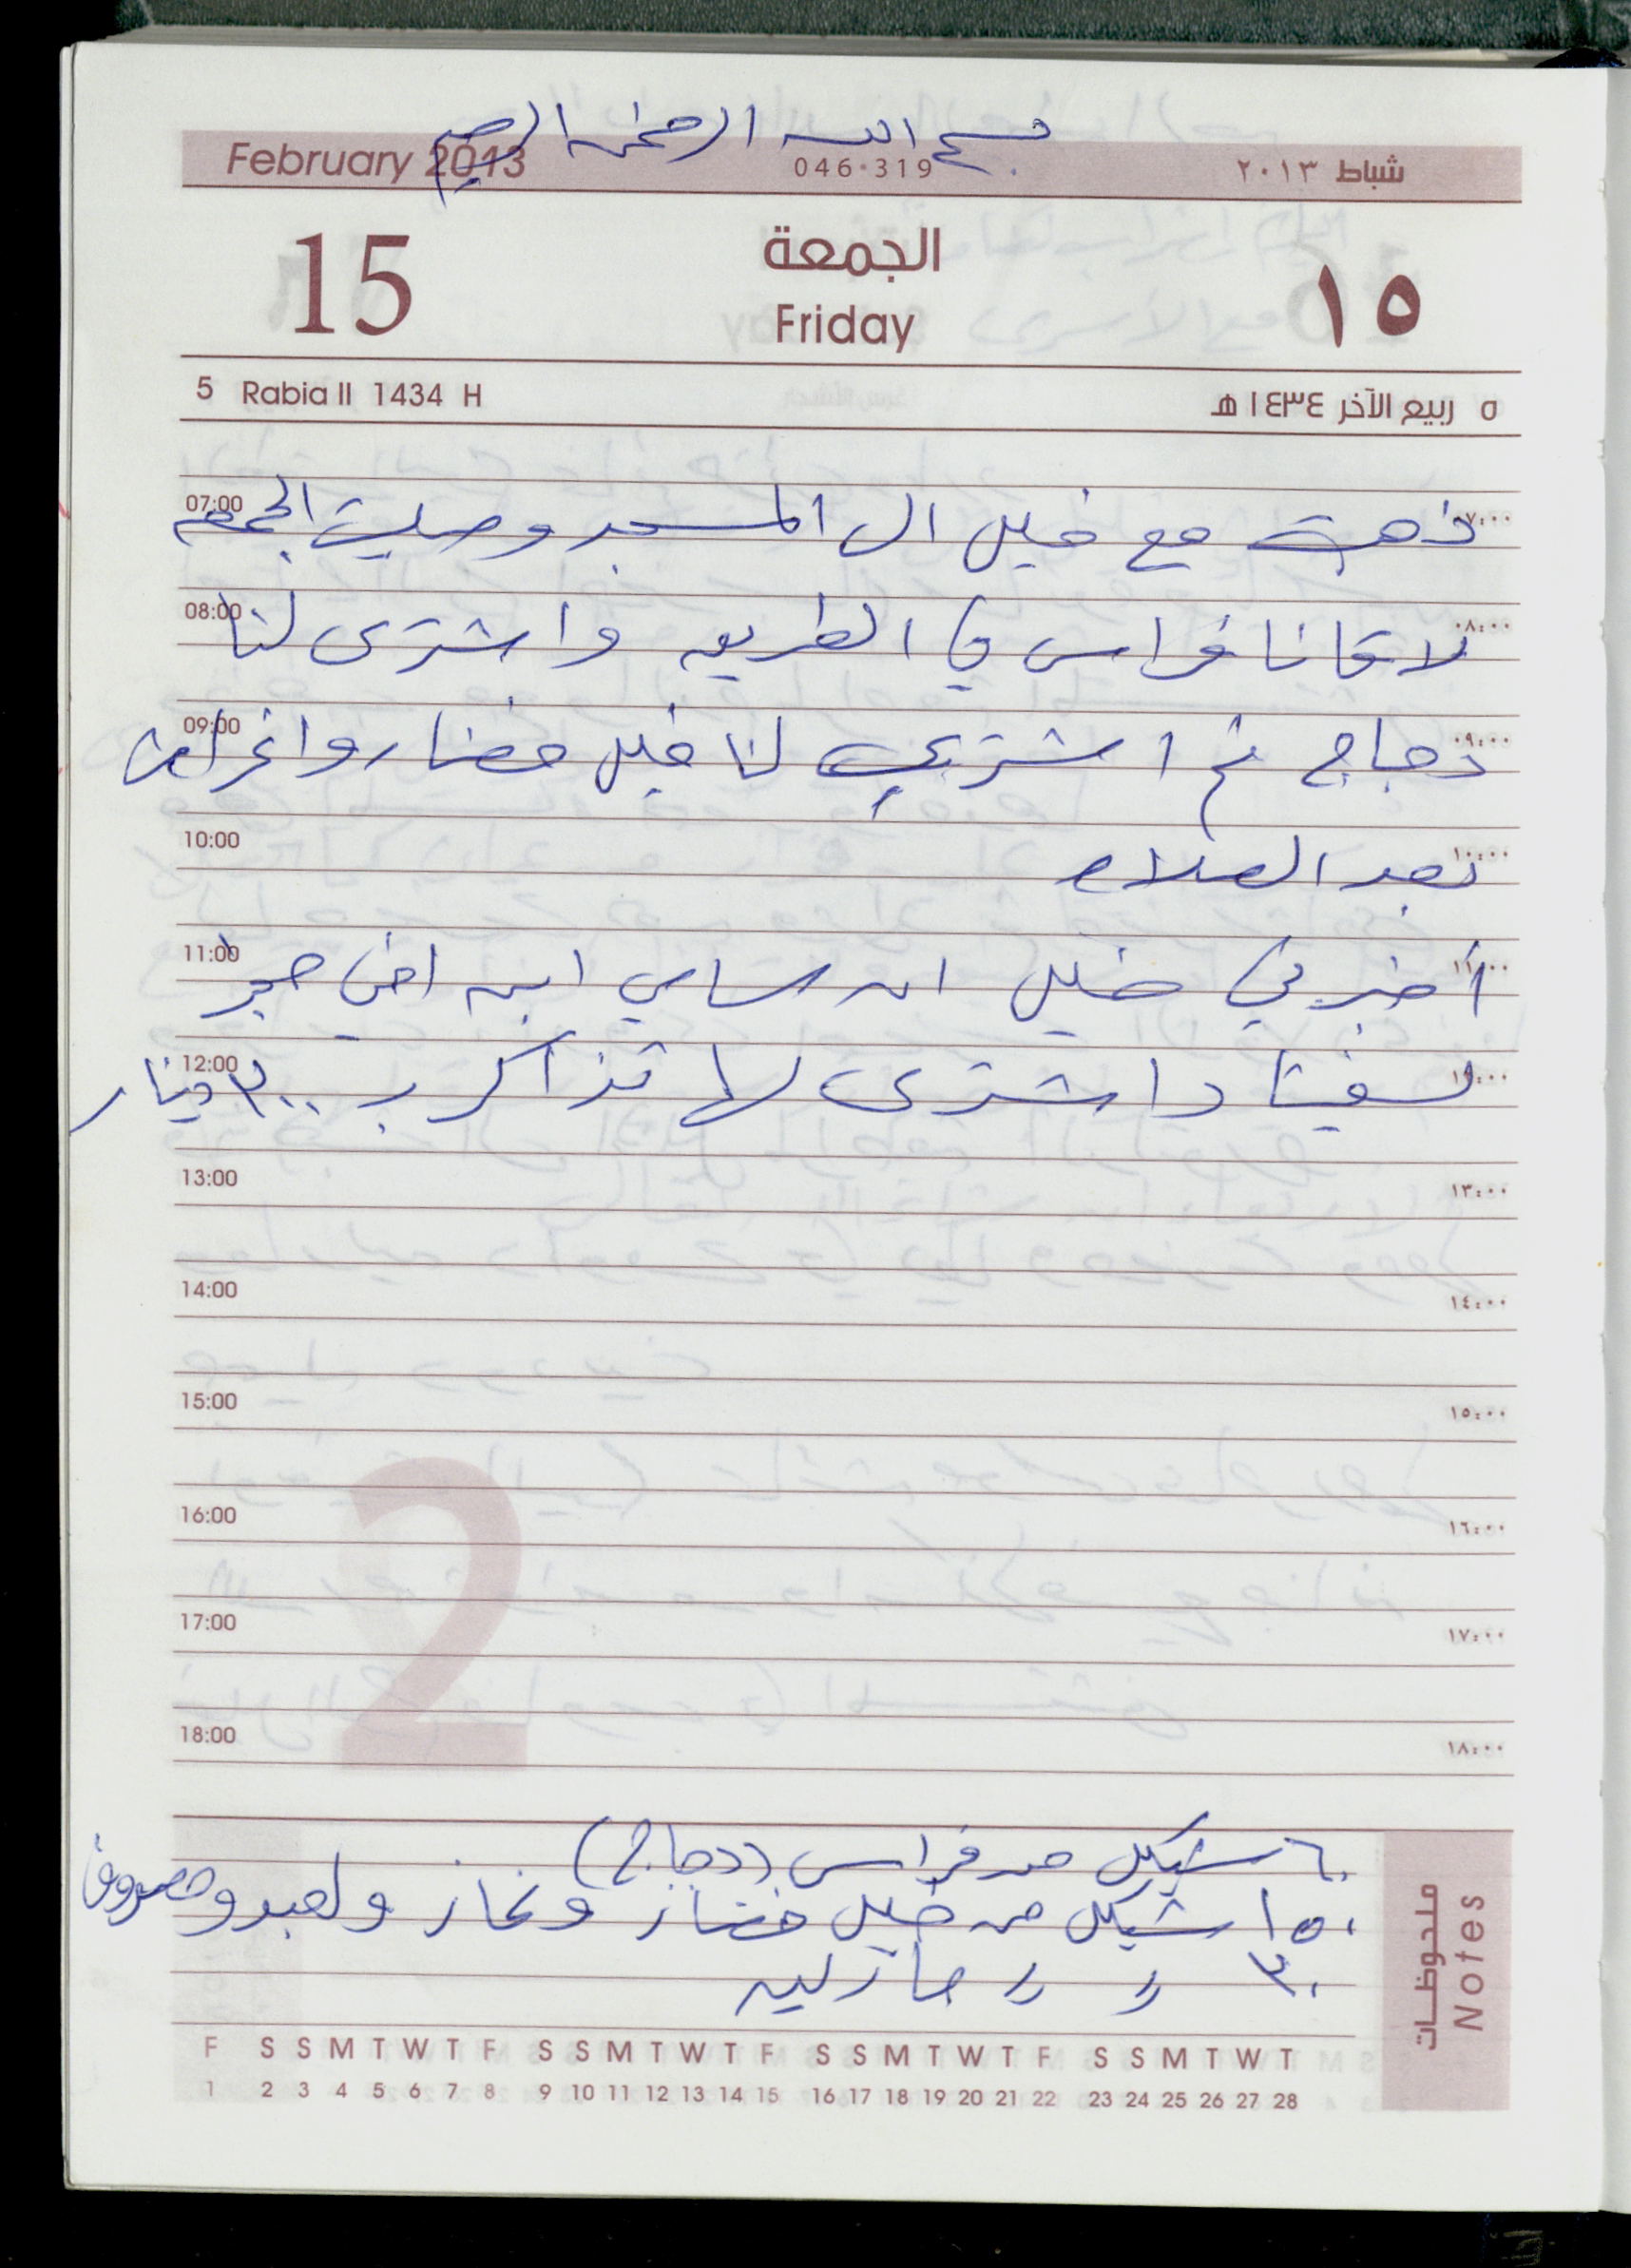 بسم الله الرحمن الرحيم
February 2013 046·319 شباط ٢٠١٣
15 الجمعة ١٥
Friday
5 Rabia II 1434 H ٥ ربيع الآخر ١٤٣٤ هـ
07:00 ذهبت مع خليل الى المسجد وصليت الجمعه ٠٧:٠٠
08:00 لاقانا فراس في الطريق واشترى لنا ٠٨:٠٠
09:00 دجاج ثم اشترى لنا خليل خضار واغراض ٠٩:٠٠
10:00 بعد الصلاه ١٠:٠٠
11:00 أخبرني خليل ان سامي ابن اخي حجز ١١:٠٠
12:00 لسفيتا واشترى لها تذاكر بـ ٣٠٠ دينار ١٢:٠٠
13:00 ١٣:٠٠
14:00 ١٤:٠٠
15:00 ١٥:٠٠
16:00 ١٦:٠٠
17:00 ١٧:٠٠
18:00 ١٨:٠٠
2
٦٠ شيكل من فراس (دجاج)
١٥٠ شيكل من خليل خضار وغاز ولعبد ومصروف
٣٠ // //
ملحوظات
Notes
F S S M T W T F S S M T W T F S S M T W T F S S M T W T
1 2 3 4 5 6 7 8 9 10 11 12 13 14 15 16 17 18 19 20 21 22 23 24 25 26 27 28